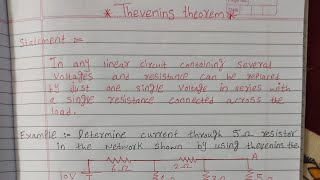 * Thevenins theorem *
Statement :-
In any linear circuit containing several
voltages and resistance can be replaced
by just one single voltage in series with
a single resistance connected across the
load.
Example :- Determine current through 5Ω resistor
in the network shown by using thevenins the
6Ω 2Ω A
10V 5Ω